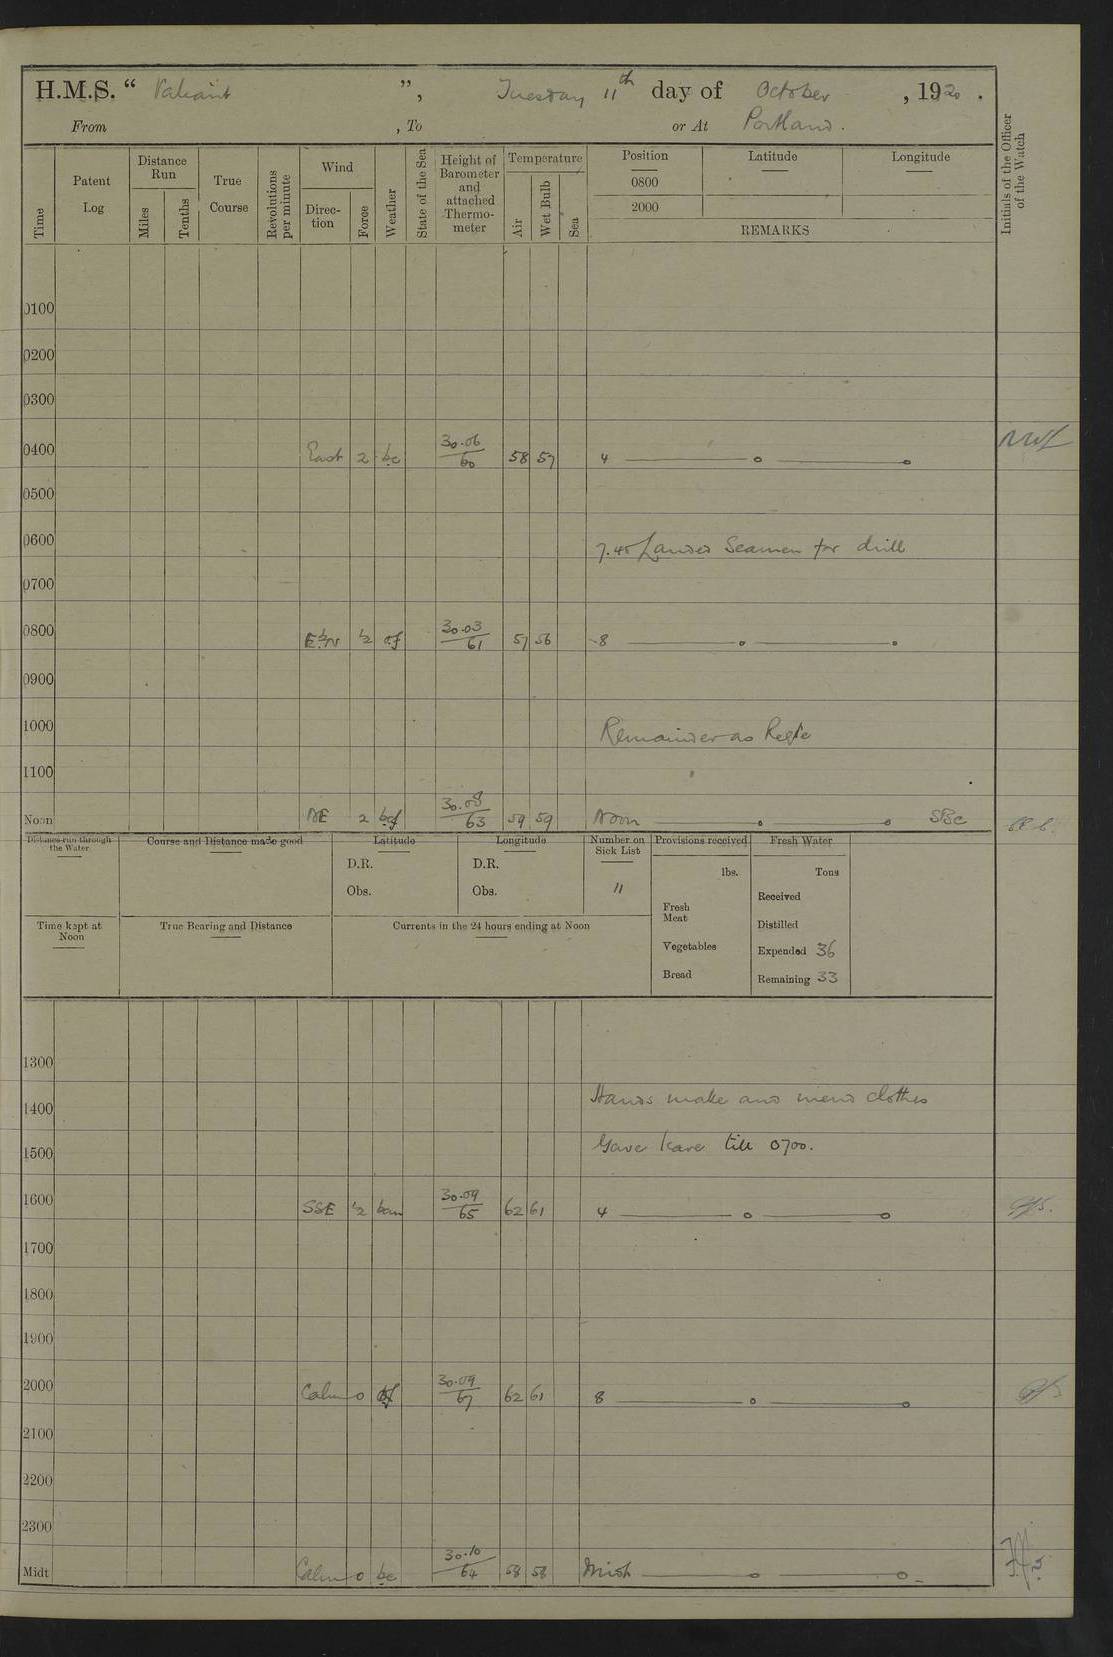 H.M.S. “ Valiant ”, Tuesday 11th day of October , 1920 .
From , To or At Portland .
Time
Patent Log
Distance Run
Miles
Tenths
True Course
Revolutions per minute
Wind
Direc-tion
Force
Weather
State of the Sea
Height of Barometer and attached Thermo-meter
Temperature
Air
Wet Bulb
Sea
Position Latitude Longitude
0800
2000
REMARKS
Initials of the Officer of the Watch
0100
0200
0300
0400 East 2 bc 30.06/60 58 57 4
0500
0600 7.45 Landed Seamen for drill
0700
0800 EbN ½ of 30.03/61 57 56 8
0900
1000 Remainder as Reqte
1100
Noon NE 2 bcf 30.08/63 59 59 Noon
Distance run through the Water
Course and Distance made good
Latitude
D.R.
Obs.
Longitude
D.R.
Obs.
Number on Sick List
11
Provisions received
lbs.
Fresh Meat
Vegetables
Bread
Fresh Water
Tons
Received
Distilled
Expended 36
Remaining 33
Time kept at Noon
True Bearing and Distance
Currents in the 24 hours ending at Noon
1300
1400 Hands make and mend clothes
1500 Gave leave till 0700.
1600 SSE ½ bcm 30.09/65 62 61 4
1700
1800
1900
2000 Calm 0 30.09/67 62 61 8
2100
2200
2300
Midt Calm 0 bc 30.10/64 58 58 Midt